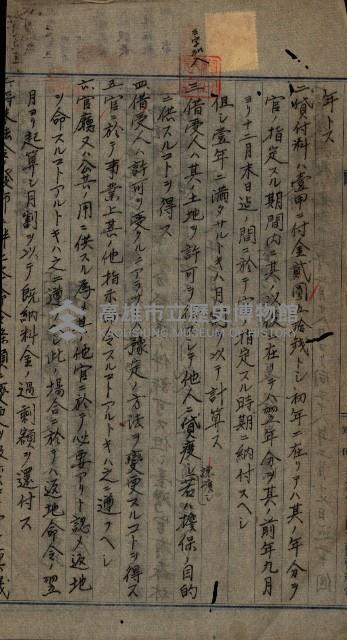 年トス
二貸付料ハ壹甲ニ付金貳圓五拾錢トシ初年ニ在リテハ其ノ年分ヲ
官ノ指定スル期間内ニ其ノ以後ニ在リテハ翌年分ヲ其ノ前年九月
ヨリ十二月末日迄ノ間ニ於テ官ノ指定スル時期ニ納付スヘシ
但シ壹年ニ滿タサルトキハ月割ヲ以テ計算ス
三借受人ハ其ノ土地ヲ許可ヲ得スシテ他人ニ貸渡シ讓渡シ若ハ擔保ノ目的
ニ供スルコトヲ得ス
四借受人ハ許可ヲ受クルニアラサレハ豫定ノ方法ヲ變更スルコトヲ得ス
五官ニ於テ事業上其ノ他指示命令スルコトアルトキハ之ニ遵フヘシ
六官廳又ハ公共ノ用ニ供スル爲メ其ノ他官ニ於テ必要アリト認メ返地
ヲ命スルコトアルトキハ之ニ遵フヘシ此ノ場合ニ於テハ返地命令ノ翌
月ヨリ起算シ月割ヲ以テ既納料金ノ過剩額ヲ還付ス
高雄市立歷史博物館